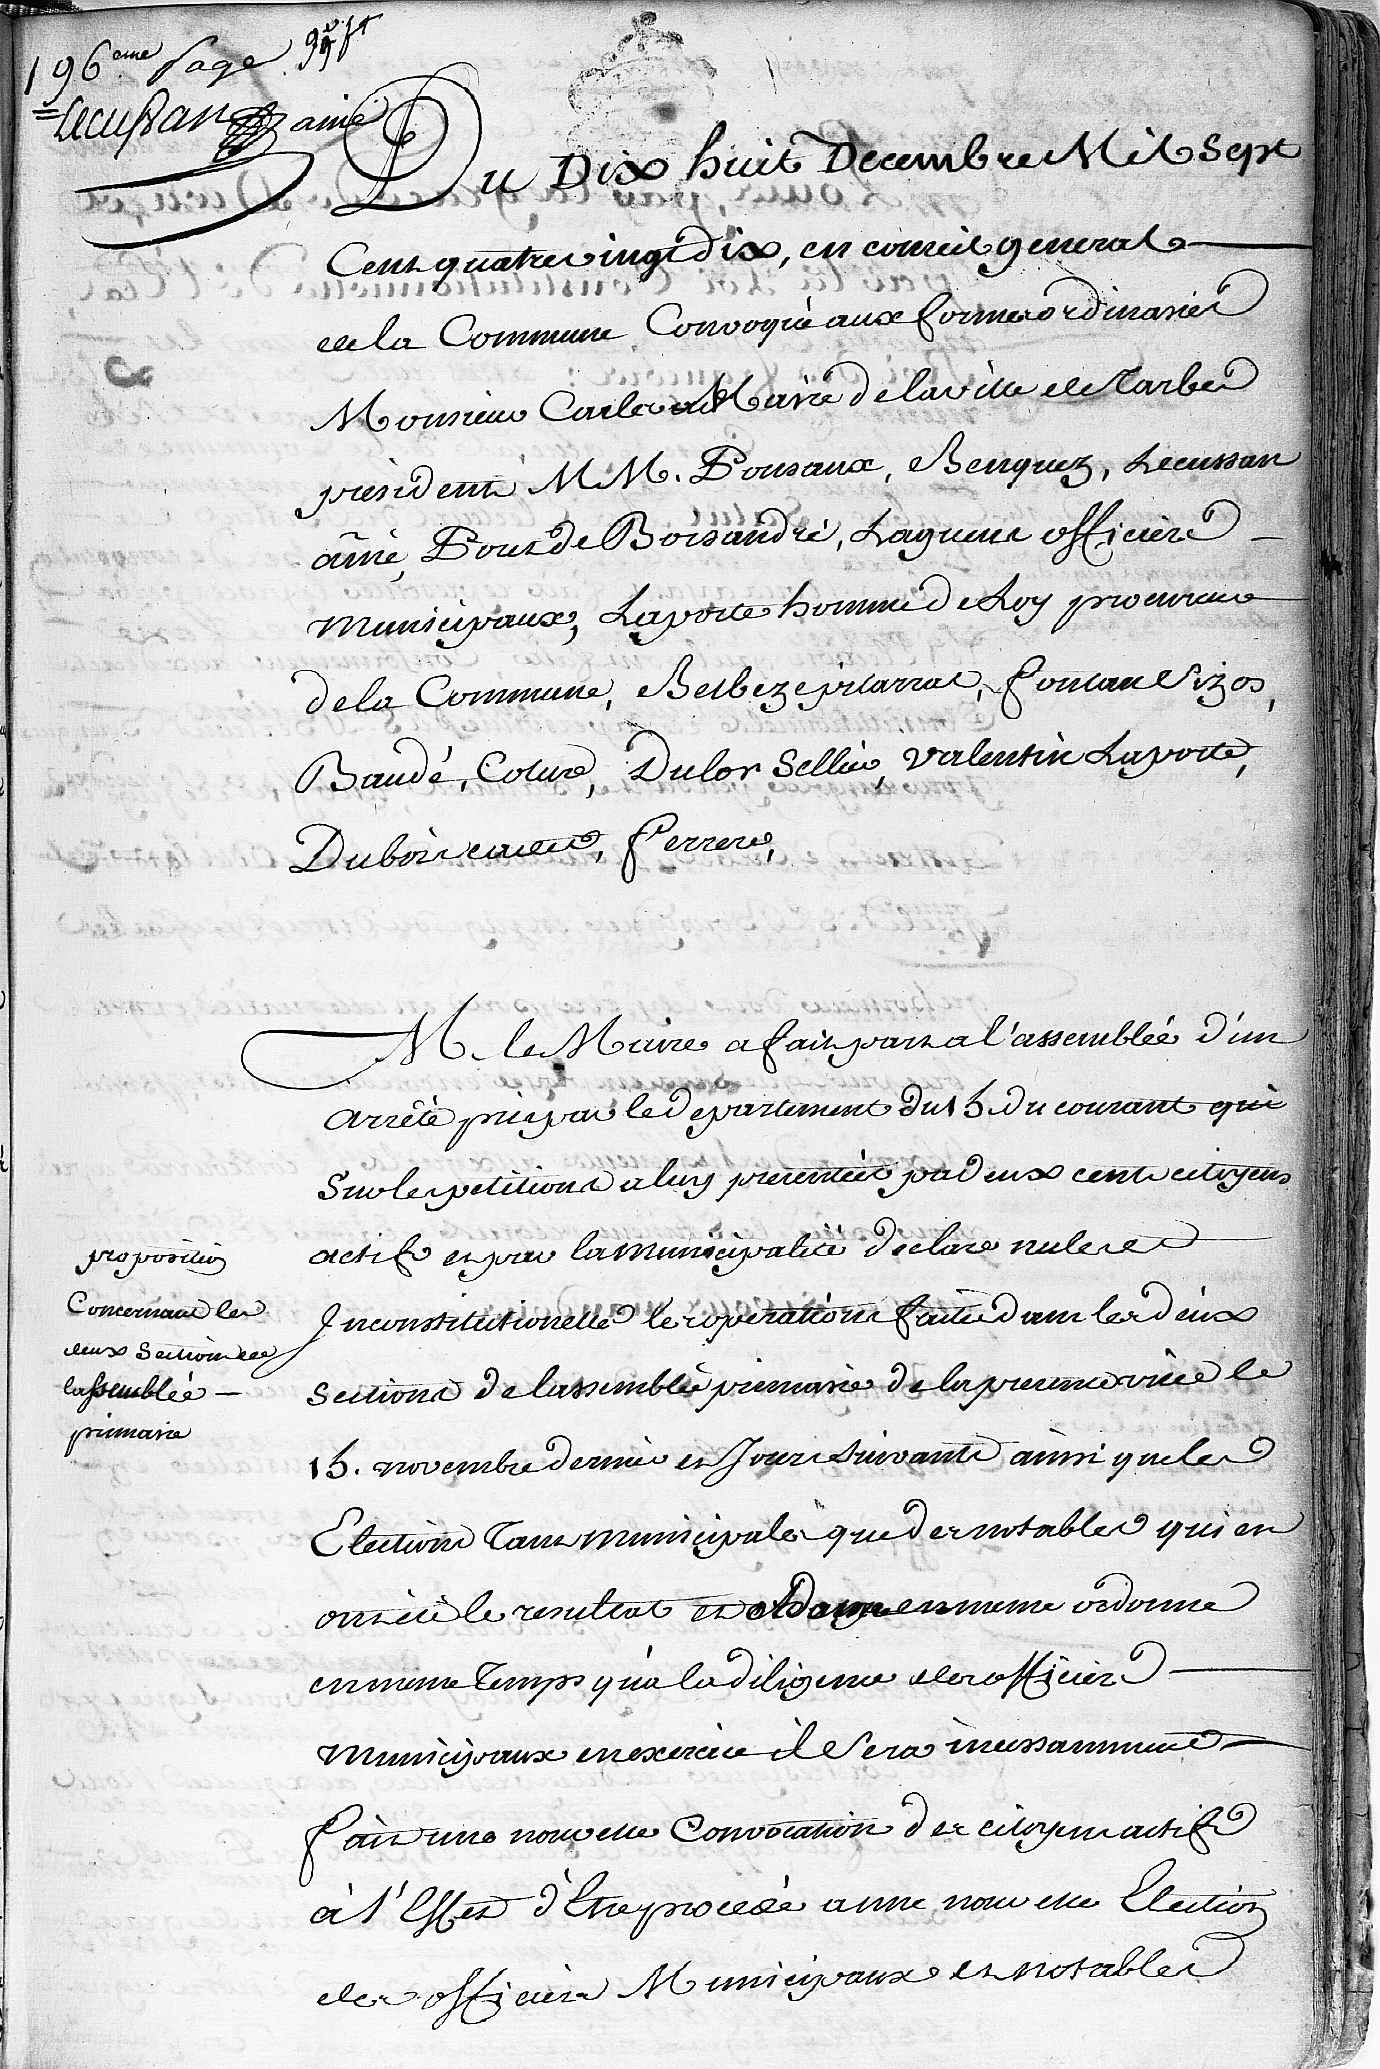 196eme page
Lecussan ainé
Du Dix huit Decembre Mil Sept
Cent quatre vingt dix, en conseil general
de la Commune Convoqué aux formes ordinaires
Monsieur Maire de la ville de Tarbes
president M M. Dousaux, Benquez, Lecussan
ainé, Pons de Boisandré, Laguens officiers
Municipaux, Laporte homme de Loy procureur
de la Commune, Belbeze pitarrat, fontan Sizos,
Baudé, Coture, Dulor Sellier, Valentin Laporte,
Ferrere,
M. le Maire a fait part a l'assemblée d'un
arrêté pris par le departement du 15. du courant qui
Sur les petitions a luy presentées par deux cents citoyens
actifs et par la municipalité declare nules et
Inconstitutionelles les operations faites dans les deux
proposition
Concernant les
deux Sections de
lassemblée
primaire
Sections de lassemblée primaire de la presente ville le
15. novembre dernier et Jours Suivants ainsi que les
Elections Tant municipales que des notables qui en
ont été le resultat et en meme ordonne
en meme Temps qu'a la diligence des officiers
Municipaux en exercice il Sera incessamment
fait une nouvelle Convocation des citoyens actifs
à l'Effet d'Etre procedé a une nouvelle Election
des officiers Municipaux et notables